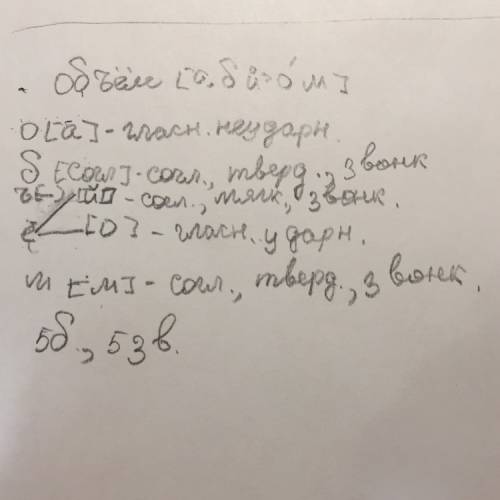 Объём [а б й' о́ м]
о [а] - гласн. неударн.
б [согл] - согл., тверд., звонк
ъ [-] [й] - согл., мягк., звонк.
ё [о] - гласн. ударн.
м [м] - согл., тверд., звонк.
5б., 5 зв.